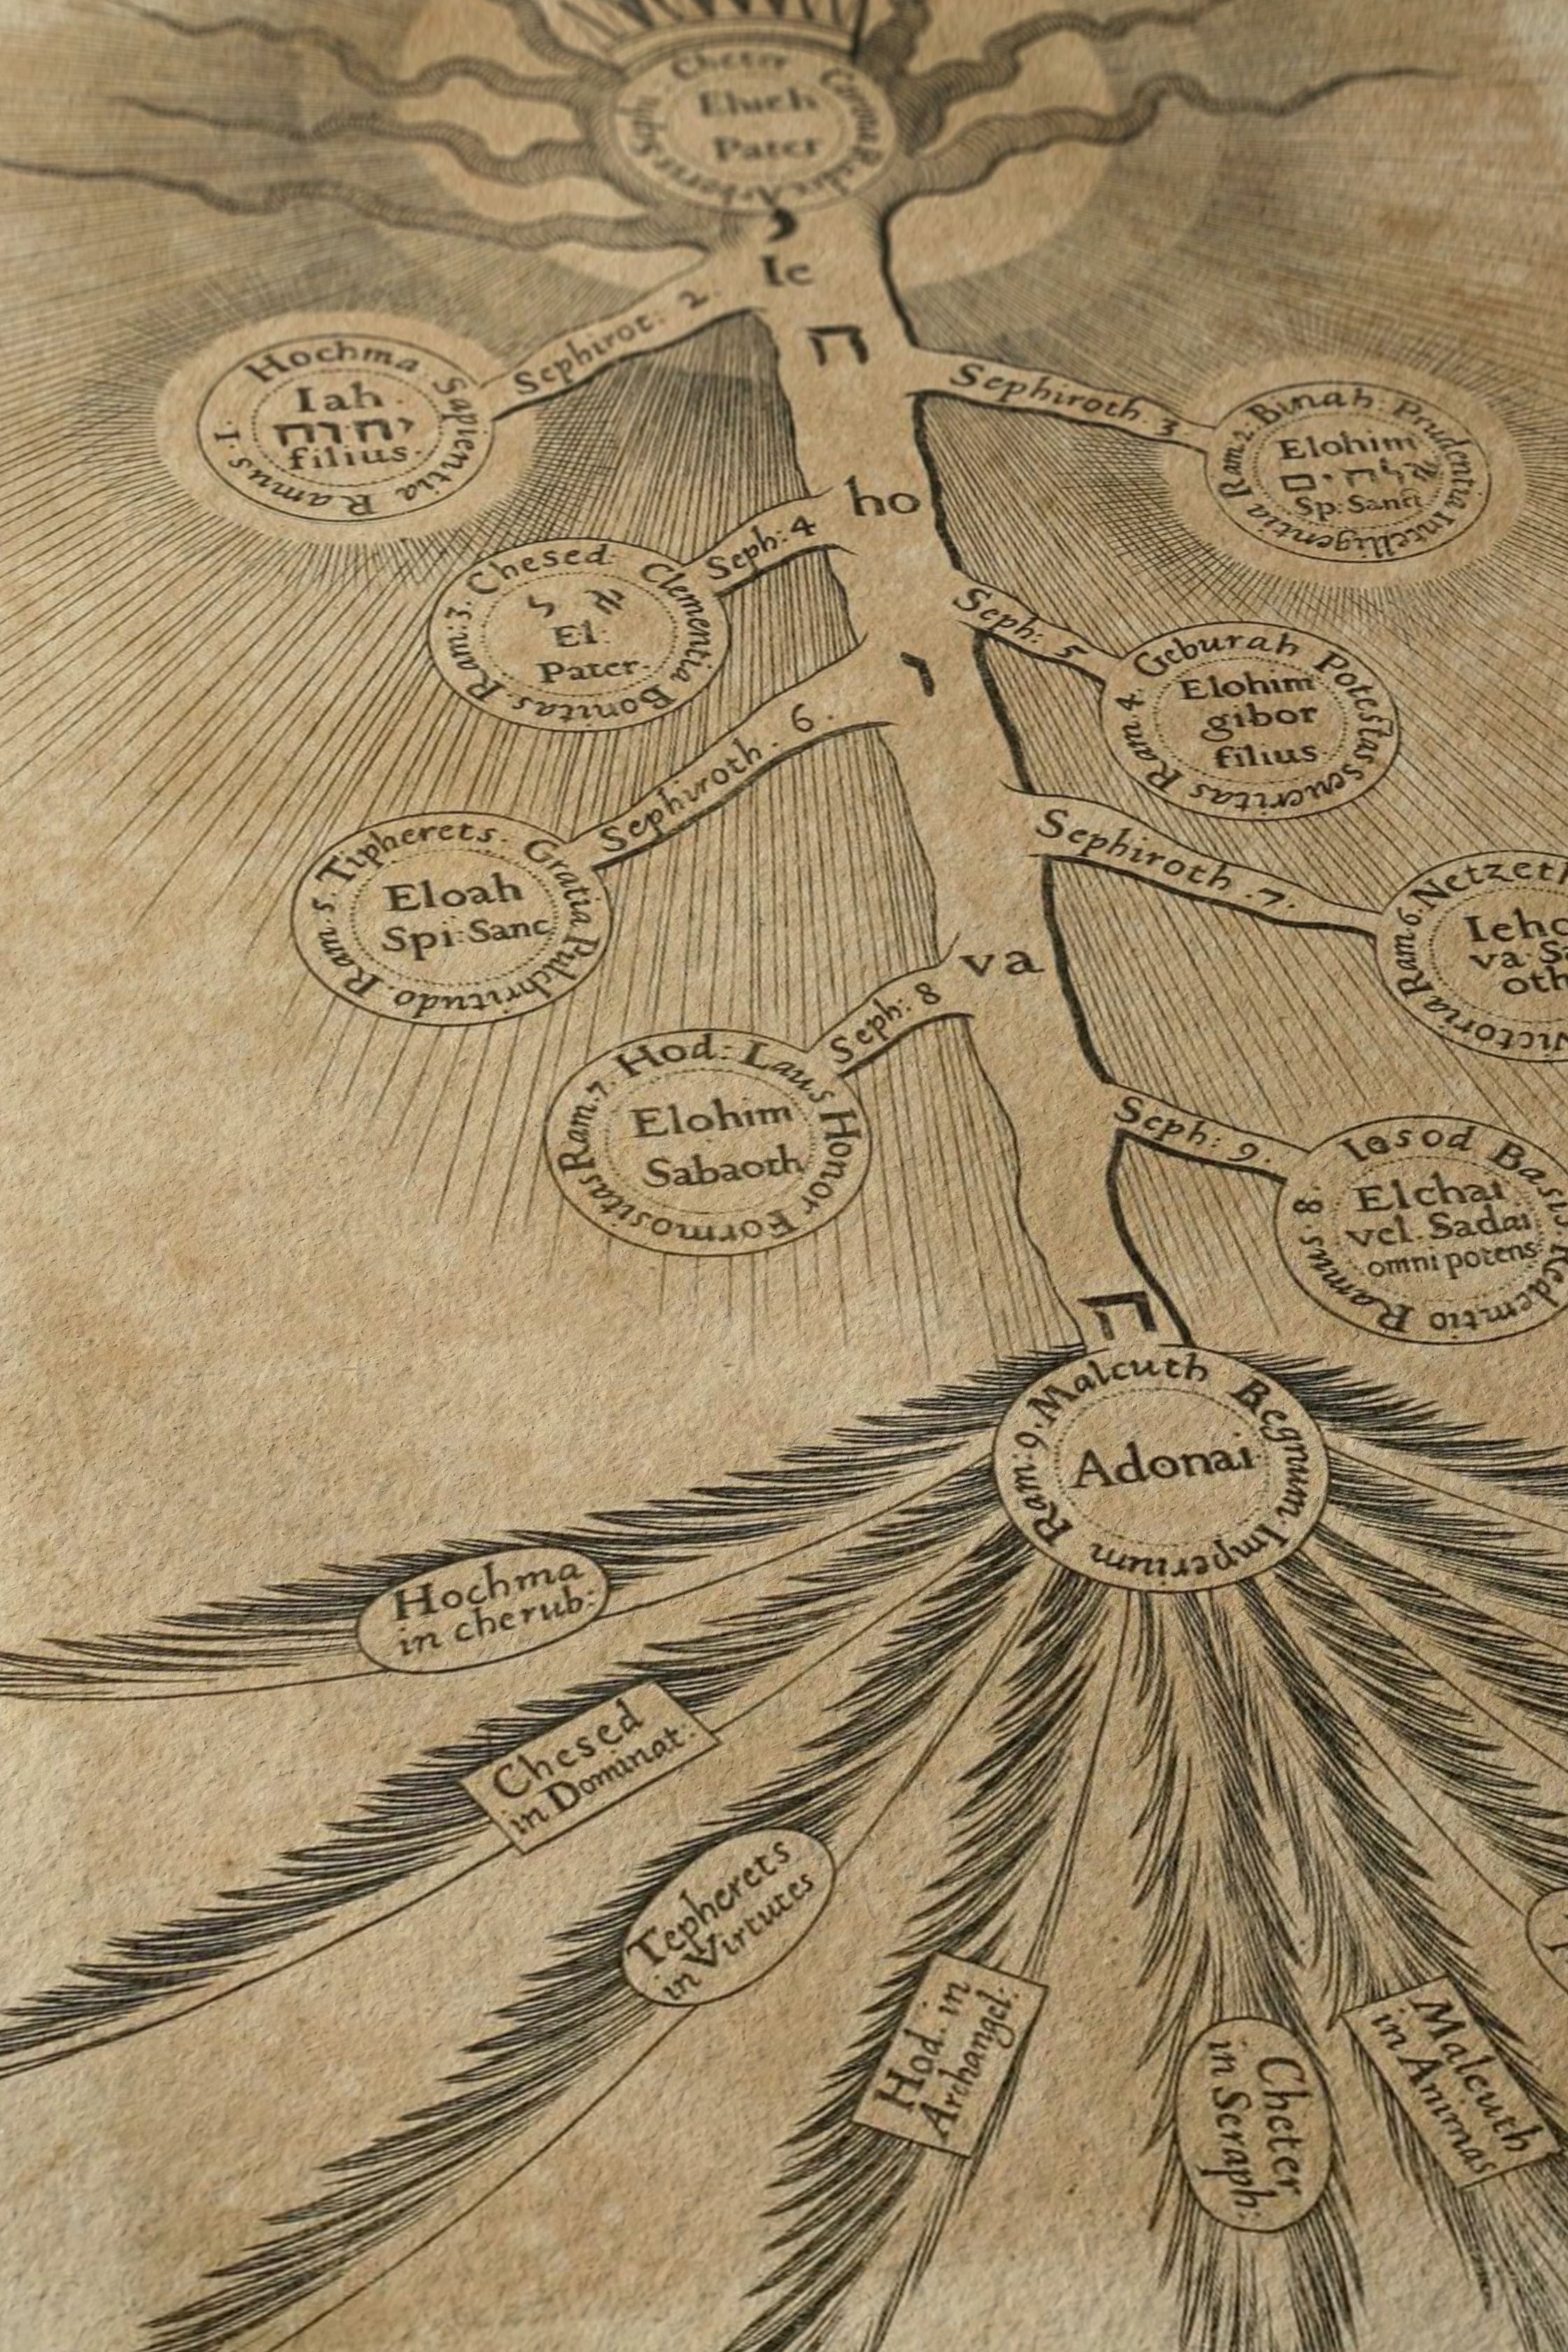 Cheter Corona Radix Arboris Seph:
Ehieh
Pater
י
Ie
Sephirot: 2.
ה
Hochma Sapientia Ramus 1.
Iah
יהוה
filius.
Sephiroth. 3
Ram: 2. Binah: Prudentia Intelligentia
Elohim
אלהים
Sp: Sanct
ho
Seph: 4
Ram: 3. Chesed: Clementia Bonitas
אל
El:
Pater.
Seph: 5
Ram 4. Geburah Potestas severitas
Elohim
gibor
filius
ו
Sephiroth. 6.
Ram. 5. Tipherets. Gratia Pulchritudo
Eloah
Spi: Sanc
Sephiroth. 7.
Ram 6. Netzeth Victoria
Ieho
va Sa
oth
va
Seph: 8
Ram. 7. Hod: Laus Honor Formositas
Elohim
Sabaoth
Seph: 9.
Iesod Basis. Redemtio Ramus. 8.
Elchai
vel. Sadai
omnipotens
ה
Ram: 9. Malcuth Regnum Imperium
Adonai
Hochma
in cherub:
Chesed
in Dominat:
Tepherets
in Virtutes
Hod. in
Archangel:
Cheter
in Seraph:
Malcuth
in Animas